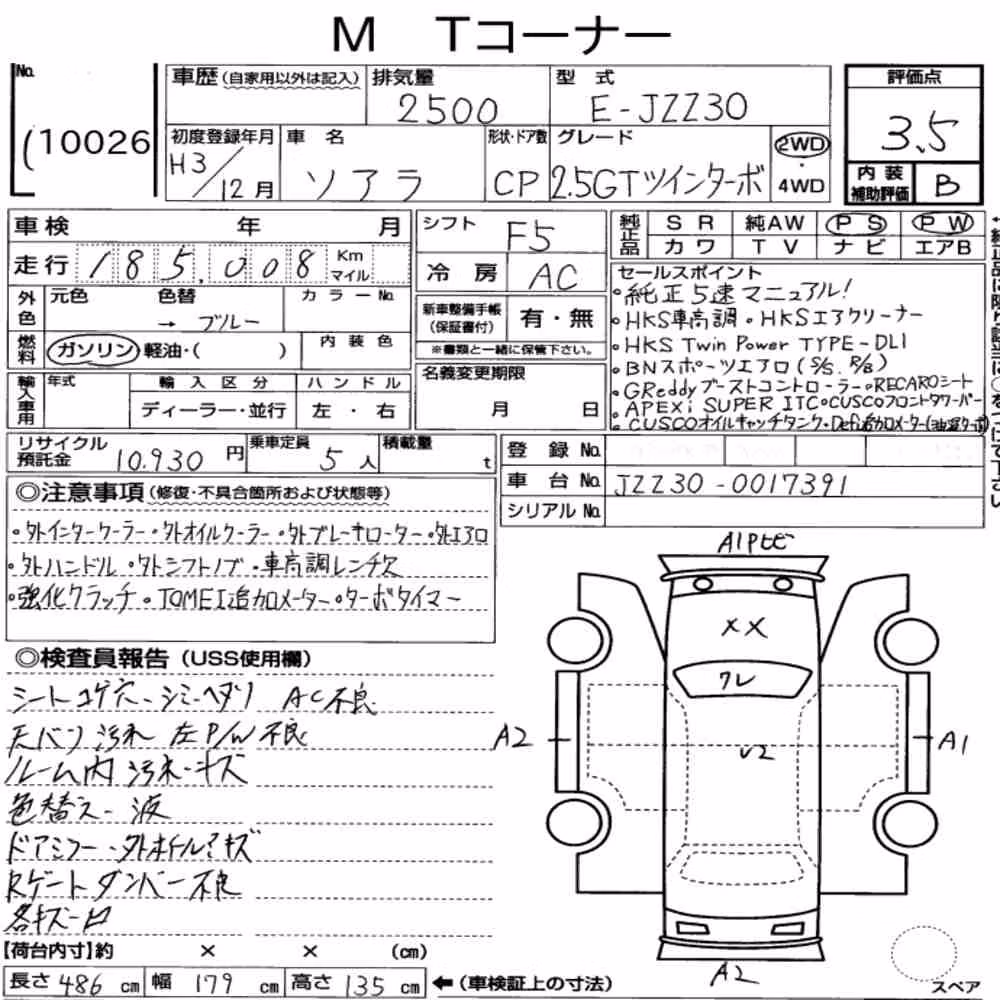 M Tコーナー
No.
(10026
車歴(自家用以外は記入)
排気量
2500
型 式
E-JZZ30
評価点
3.5
初度登録年月
H3/12月
車 名
ソアラ
形状・ドア数
CP
グレード
2.5GTツインターボ
2WD
・
4WD
内 装
補助評価
B
車検 年 月
走行 185,008 Km
マイル
シフト
F5
冷 房
AC
純正品
SR 純AW PS PW
カワ TV ナビ エアB
外色
元色 色替 カラーNo.
→ ブルー
燃料
ガソリン・軽油・( )
内 装 色
新車整備手帳
(保証書付)
有・無
※書類と一緒に保管下さい。
名義変更期限
月 日
セールスポイント
・純正5速マニュアル!
・HKS車高調・HKSエアクリーナー
・HKS Twin Power TYPE-DLI
・BNスポーツエアロ(S/S. R/B)
・GReddyブーストコントローラー・RECAROシート
・APEXi SUPER ITC・CUSCOフロントタワーバー
・CUSCOオイルキャッチタンク・Defi追加メーター
輸入車用
年式 輸入区分 ハンドル
ディーラー・並行 左・右
リサイクル
預託金
10,930 円
乗車定員
5 人
積載量
t
登 録 No.
車 台 No. JZZ30-0017391
シリアル No.
◎注意事項(修復・不具合箇所および状態等)
・外インタークーラー・外オイルクーラー・外ブレーキローター・外エアロ
・外ハンドル・外シフトノブ・車高調レンチ欠
・強化クラッチ・TOMEI追加メーター・ターボタイマー
◎検査員報告(USS使用欄)
シートコゲ穴-シミ-ヘタリ AC不良
天バリ汚れ 左P/W不良
ルーム内汚れ・キズ
色替え-液
ドアミラー・外ホイールアキズ
Rゲートダンパー不良
各キズ-凹
A1Pヒビ
XX
ワレ
U2
A2
A1
A2
スペア
【荷台内寸】約 × × (cm)
長さ 486 cm 幅 179 cm 高さ 135 cm ←(車検証上の寸法)